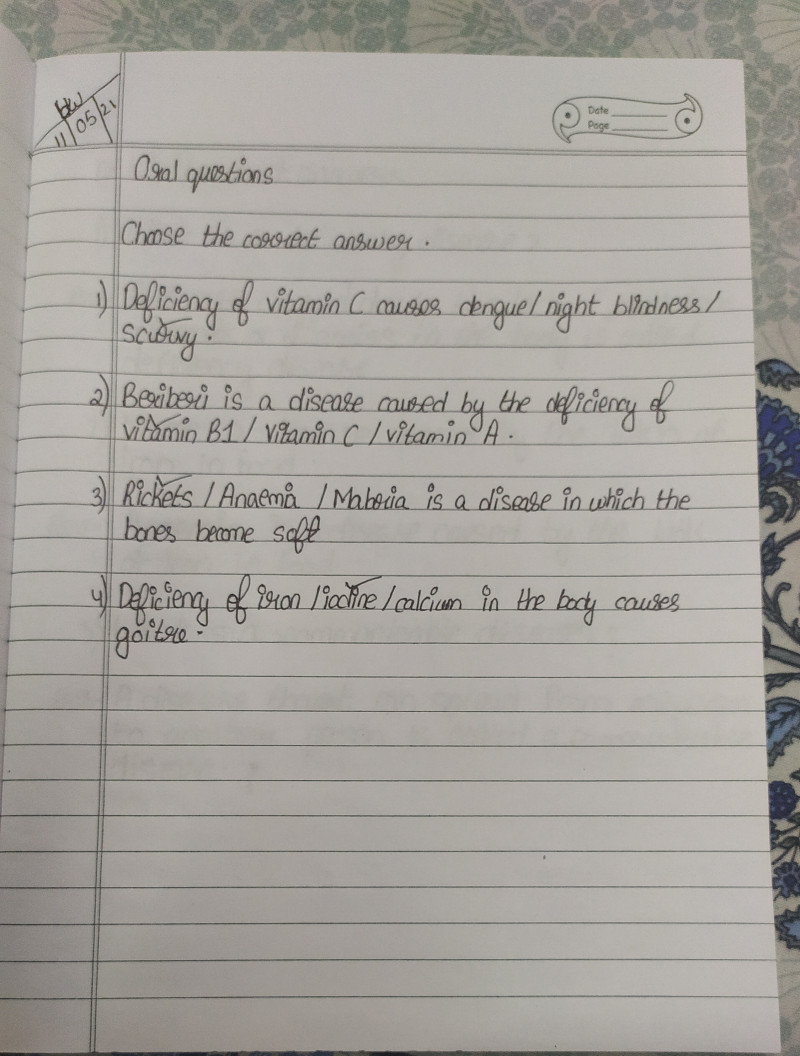 HW
11/05/21
Date
Page
Oral questions
Choose the correct answer.
1) Deficiency of vitamin C causes dengue/night blindness/
scurvy.
2) Beriberi is a disease caused by the deficiency of
vitamin B1/vitamin C/vitamin A.
3) Rickets/Anaemia/Malaria is a disease in which the
bones become soft
4) Deficieny of iron/iodine/calcium in the body causes
goitre.